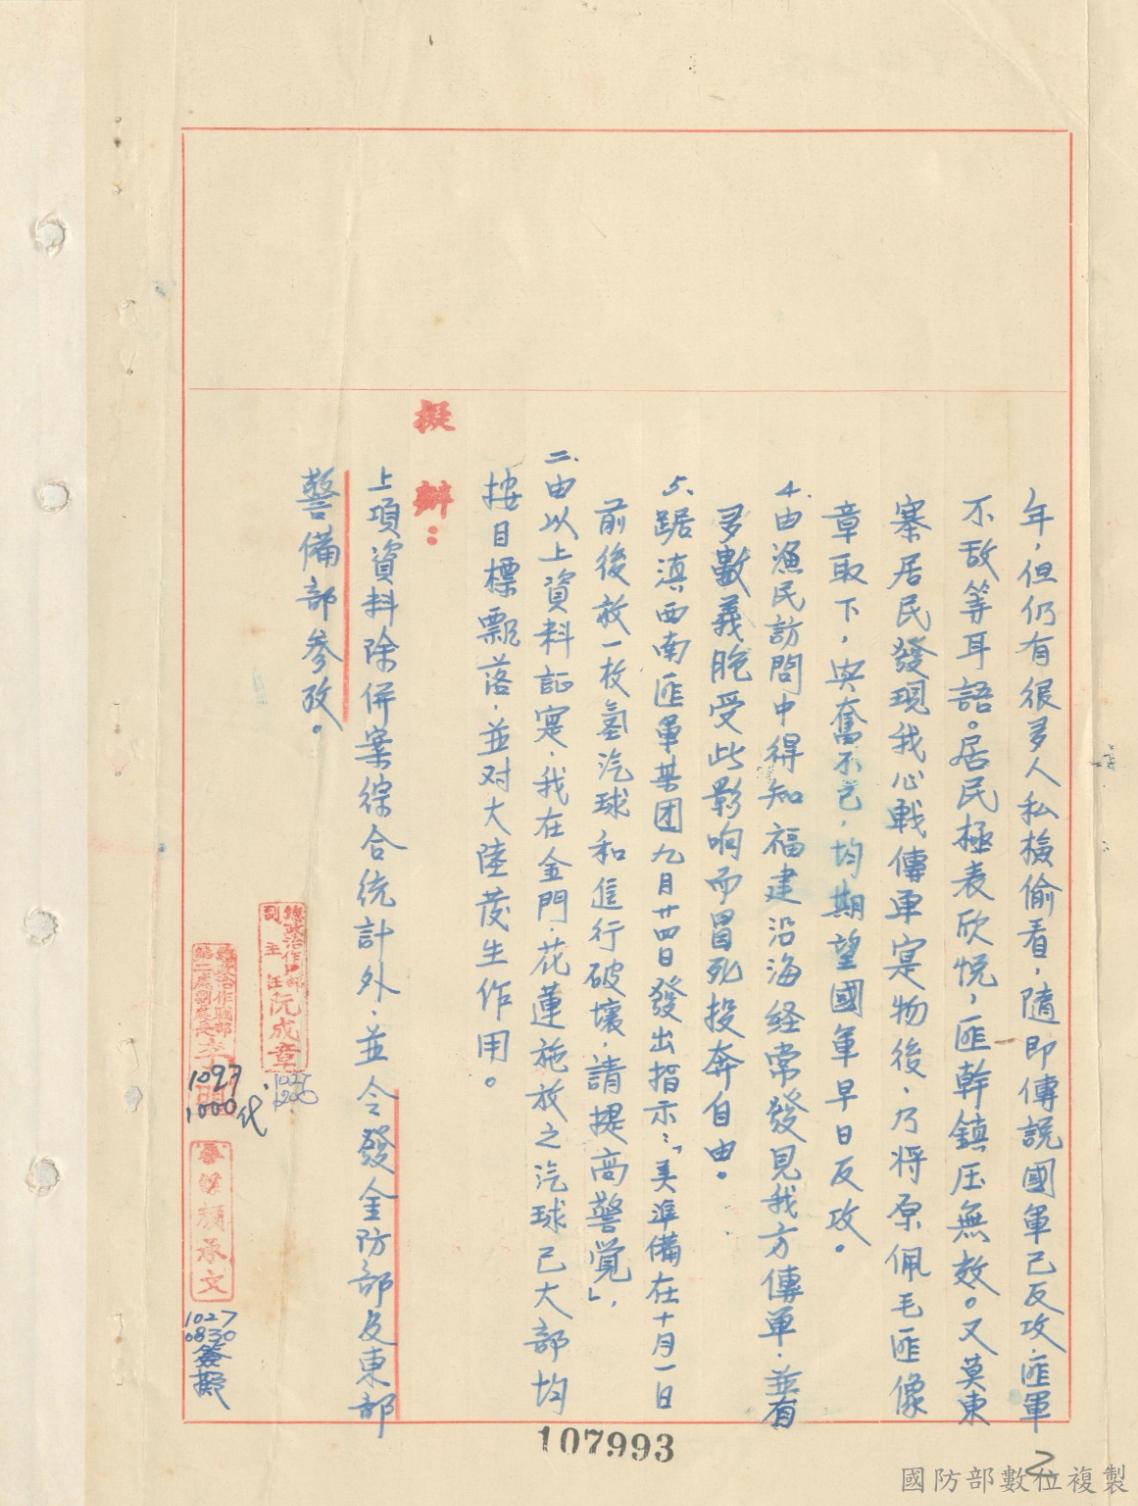 年，但仍有很多人私檢偷看，隨即傳說國軍已反攻，匪軍
不敌等耳語。居民極表欣悅，匪幹鎮压無效。又莫東
寨居民發現我心戰傳單寔物後，乃將原佩毛匪像
章取下，興奮不已，均期望國軍早日反攻。
4.由漁民訪問中得知福建沿海経常發見我方傳單，並有
多數義胞受此影响而冒死投奔自由。
5、踞滇西南匪軍某团九月廿四日發出指示：「美準備在十月一日
前後放一枚氢汽球和進行破壞，請提高警覚」，
二、由以上資料証寔，我在金門、花蓮施放之汽球已大部均
按目標飄落，並对大陸發生作用。
擬辦：
上項資料除併案綜合統計外，並令發金防部及東部
警備部參攷。
總政治作戰部
副主任阮成章
1027
1200
總政治作戰部
第二處副處長李明
1027
1000代
參謀顏承文
1027
0830
簽擬
107993
2
國防部數位複製